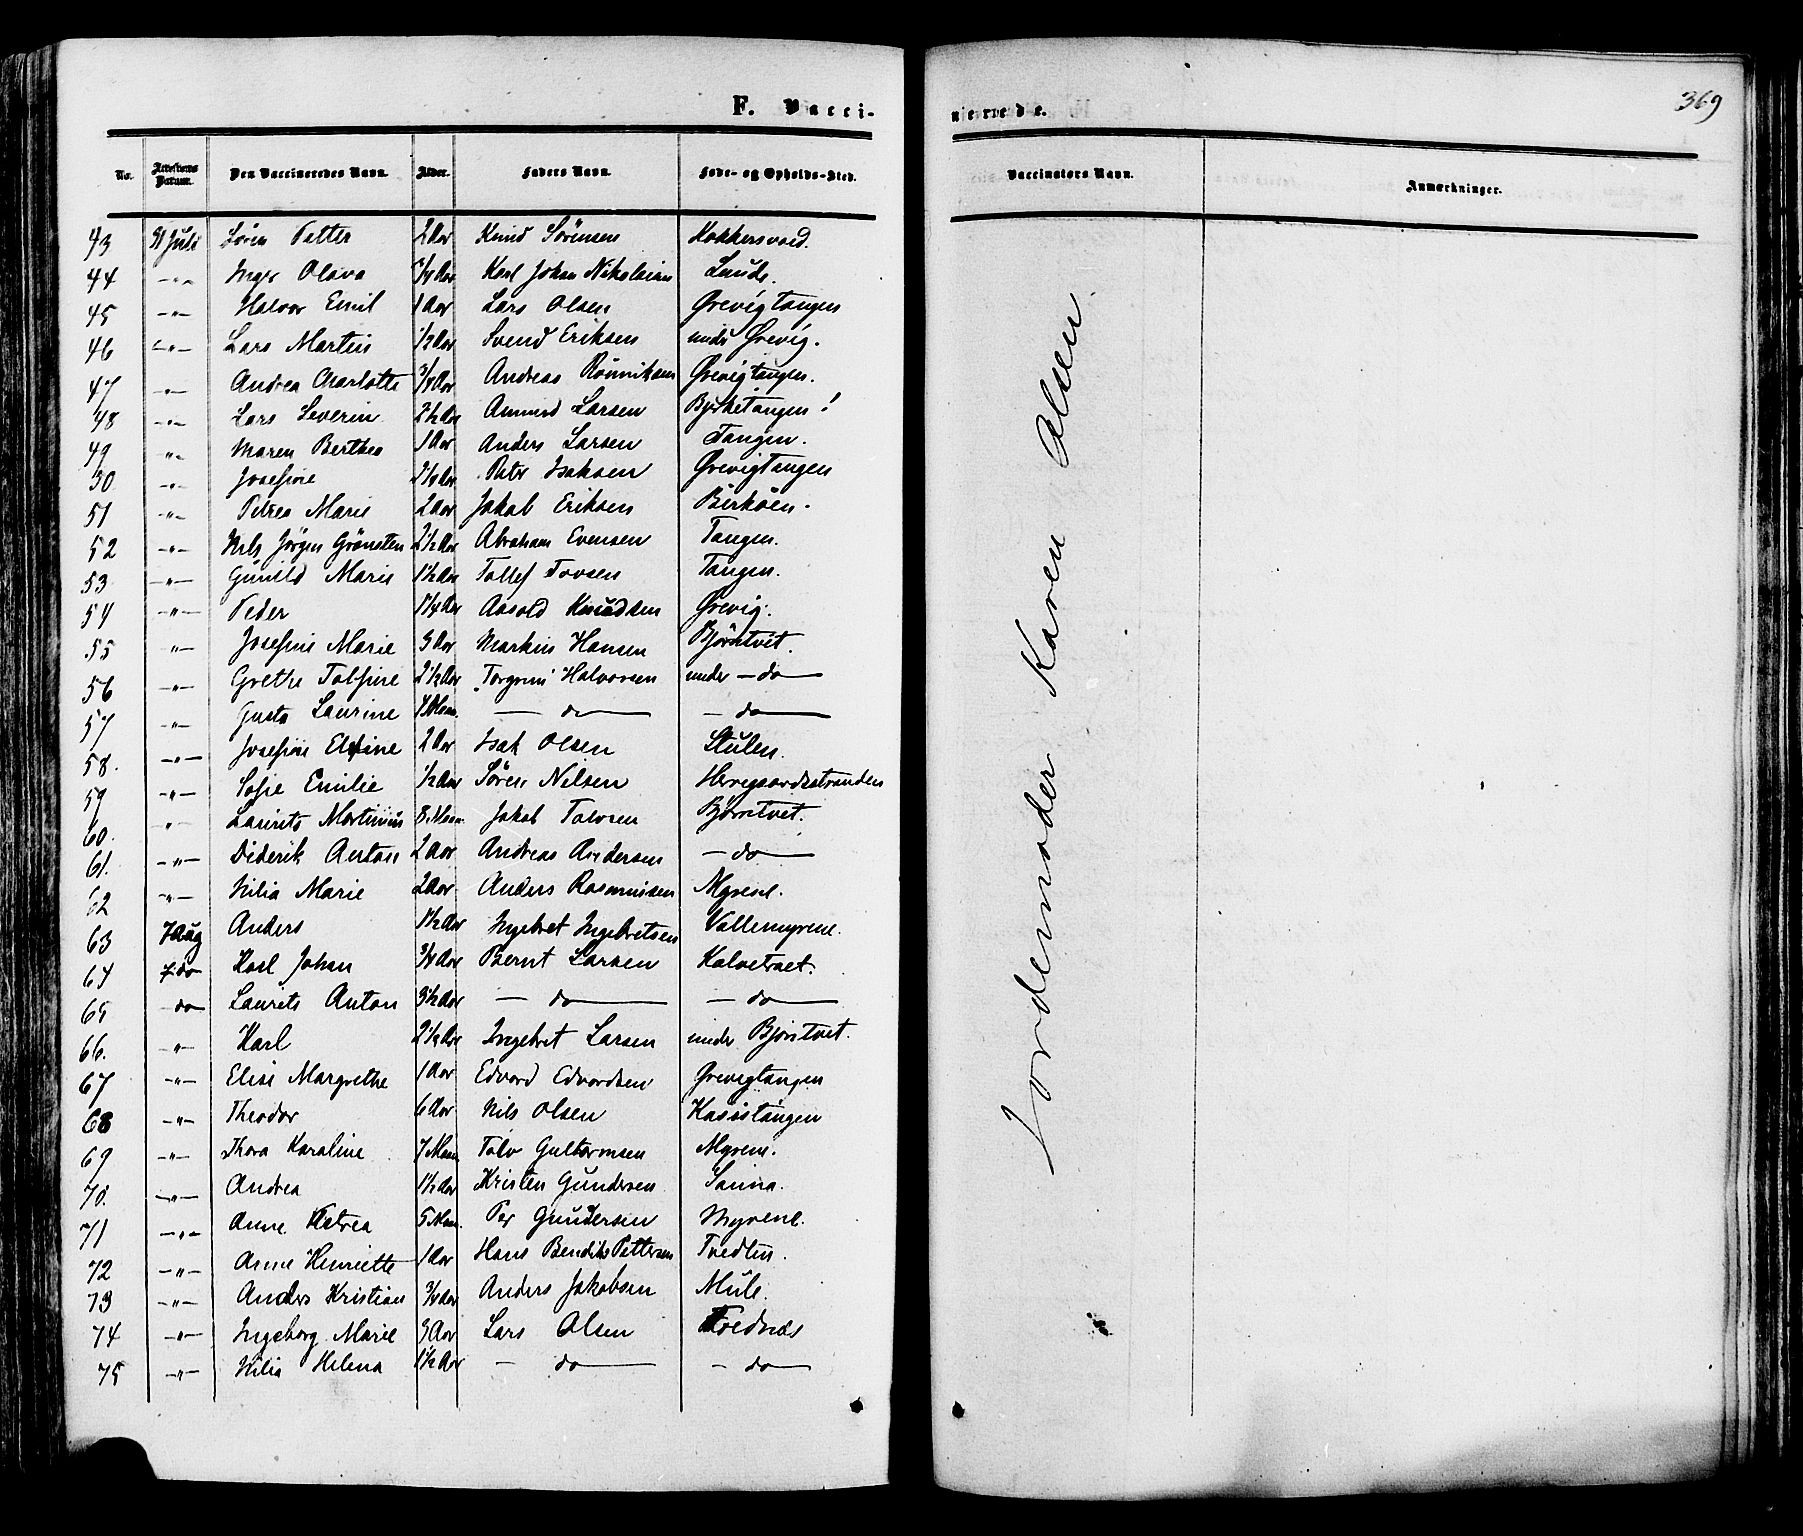 F. Vacci-
nerede.
369
No. Attestens Datum. Den Vaccineredes Navn. Alder. Faders Navn. Føde- og Opholds-Sted.
Vaccinators Navn. Anmærkninger.
43 31 Juli Søren Petter 2 Aar Knud Sörensen
44 -"- Inger Olava 1/4 Aar Karl Johan Nikolaisen Lunde.
45 -"- Halvor Emil 1 Aar Lars Olsen Ørevigtangen
46 -"- Lars Martin 1/2 Aar Svend Eriksen under Ørevig.
47 -"- Andrea Charlotte 3/4 Aar Andreas Ørevigtangen.
48 -"- Lars Severin 2 1/2 Aar Ammund Larsen Bjerketangen!
49 -"- Maren Berthea 1 Aar Anders Larsen Tangen.
50 -"- Josefine Peter Isaksen Ørevigtangen
51 -"- Petrea Marie 2 Aar Jakob Eriksen Birköen.
52 -"- Nils Jørgen Grönsten 2 1/2 Aar Abraham Evensen Tangen.
53 -"- Gunild Marie 1 1/2 Aar Tollef Tovsen Tangen.
54 -"- Peder 1 1/4 Aar Aasold Knudsen Ørevig.
55 -"- Josefine Marie 3 Aar Markus Hansen Bjørntvet.
56 -"- Grethe Tolfine 2 1/2 Aar Torgrim Halvorsen under - do -
57 -"- Gusta Laurine 7 Maan. - do - - do -
58. -"- Josefine Elfine 2 Aar Isak Olsen Stulen.
59 -"- Sofie Emilie 1/2 Aar Søren Nilsen Herregaardsstranden
60. -"- Laurits Martinius 8 Maan. Jakob Talvsen Bjørntvet.
61. -"- Diderik Anton 2 Aar Andreas Andersen - do -
62 -"- Nilia Marie 2 Aar. Anders Rasmussen Myrene.
63 7 Aug Anders 1 1/2 Aar Ingebret Ingebretsen Vallemyrene.
64 7 do Karl Johan 3/4 Aar Bernt Larsen Kalvetraet.
65 do Laurits Anton 3 1/2 Aar - do - - do -
66. -"- Karl 2 1/2 Aar Ingebret Larsen under Bjørntvet.
67 -"- Elise Margrethe 1 Aar Edvard Edvardsen Ørevigtangen
68 -"- Theodor 6 Aar Nils Olsen Kasistangen
69 -"- Thora Karoline 7 Maan Talv Gultormsen Myrene.
70. -"- Andrea 1 1/2 Aar Kristen Gundersen Sanna.
71 -"- Anne Petrea 5 Maan. Per Gundersen Myrene.
72 -"- Anne Henriette 1 Aar Hans Bendiks Pettersen Tvedten.
73 -"- Anders Kristian 3/4 Aar Anders Jakobsen Mule.
74 -"- Ingeborg Marie 3 Aar Lars Olsen Tvednæs
75 -"- Nilia Helena 1 1/2 Aar - do - - do -
Jordemoder Karen Olsen